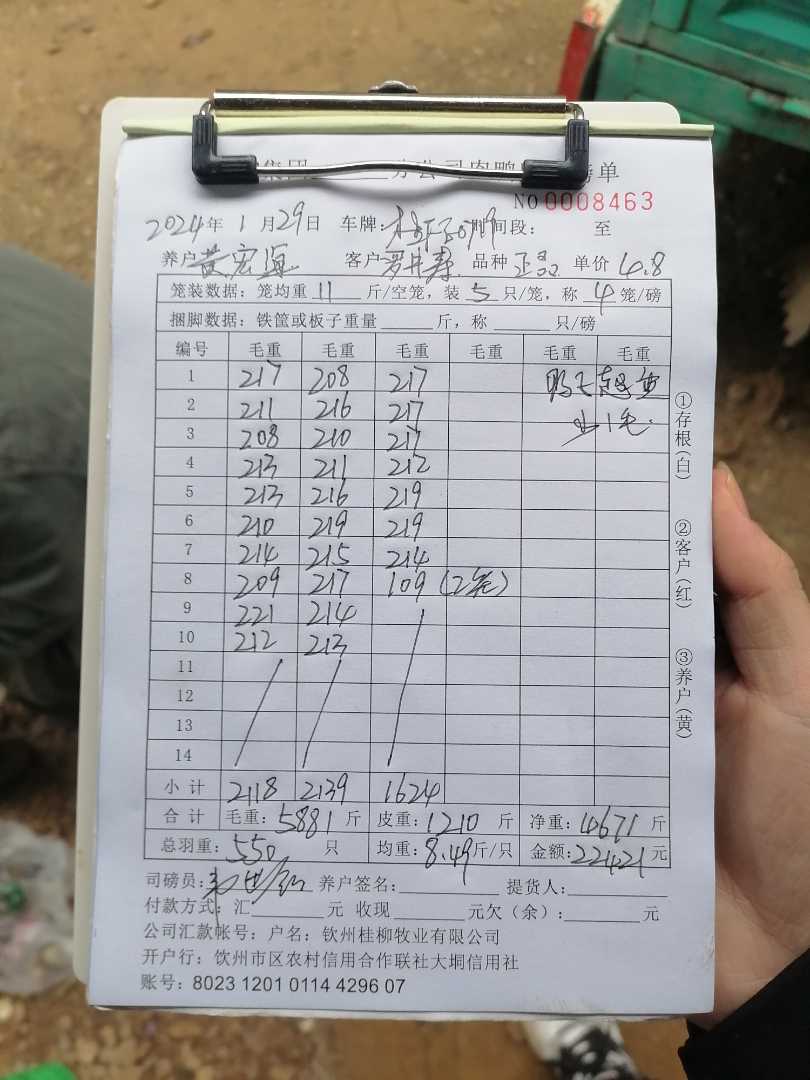 集团 分公司肉鸭 磅单
NO 0008463
2024年 1月29日 车牌: 时间段: 至
养户 黄宏 客户 罗 寿 品种 正品 单价 4.8
笼装数据:笼均重 11 斤/空笼,装 5 只/笼,称 4 笼/磅
捆脚数据:铁筐或板子重量 斤,称 只/磅
编号 毛重 毛重 毛重 毛重 毛重 毛重
1 217 208 217
2 211 216 217
3 208 210 217
4 213 211 212
5 213 216 219
6 210 219 219
7 214 215 214
8 209 217 109 (2笼)
9 221 214
10 212 213
11
12
13
14
小计 2118 2139 1624
合计 毛重:5881斤 皮重:1210斤 净重:4671斤
总羽重:550只 均重:8.49斤/只 金额:22421元
司磅员: 养户签名: 提货人:
付款方式:汇 元 收现 元欠(余): 元
公司汇款帐号:户名:钦州桂柳牧业有限公司
开户行:钦州市区农村信用合作联社大垌信用社
账号:8023 1201 0114 4296 07
①存根(白)
②客户(红)
③养户(黄)